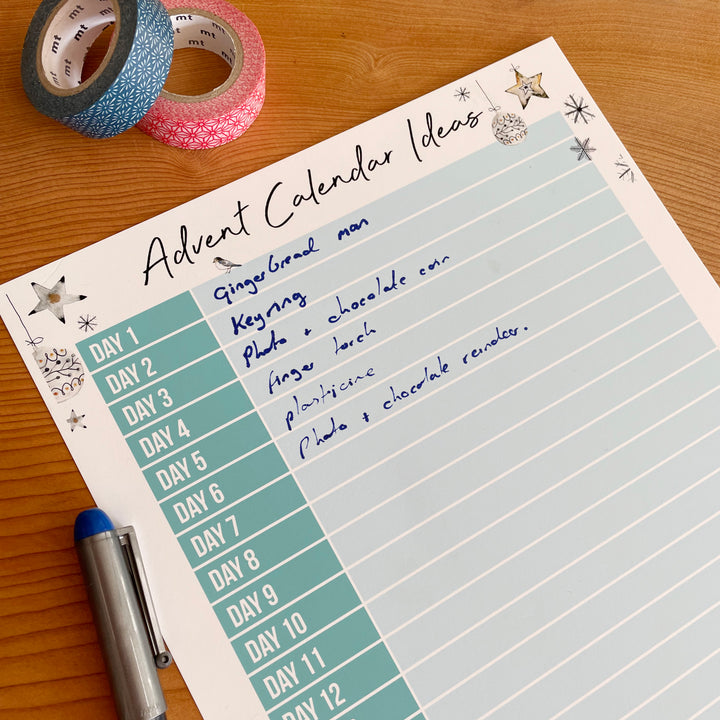 mt
mt
mt
mt
Advent Calendar Ideas
DAY 1 Gingerbread man
DAY 2 Keyring
DAY 3 Photo + chocolate coin
DAY 4 finger torch
DAY 5 plasticine
DAY 6 Photo + chocolate reindeer.
DAY 7
DAY 8
DAY 9
DAY 10
DAY 11
DAY 12